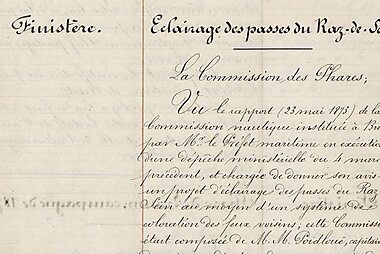 Finistère.
Eclairage des passes du Raz-de-Se
La Commission des Phares;
Vu le rapport (25 mai 1875) de la
Commission nautique instituée à Br
par Mr. le Préfet maritime en exécution
d'une dépêche ministérielle du 4 mars
précédent, et chargée de donner son avis
un projet d'éclairage des passes du Raz
Sein au moyen d'un système de
coloration des feux voisins; cette Commiss
était composée de M. M. Poidloué, capitai